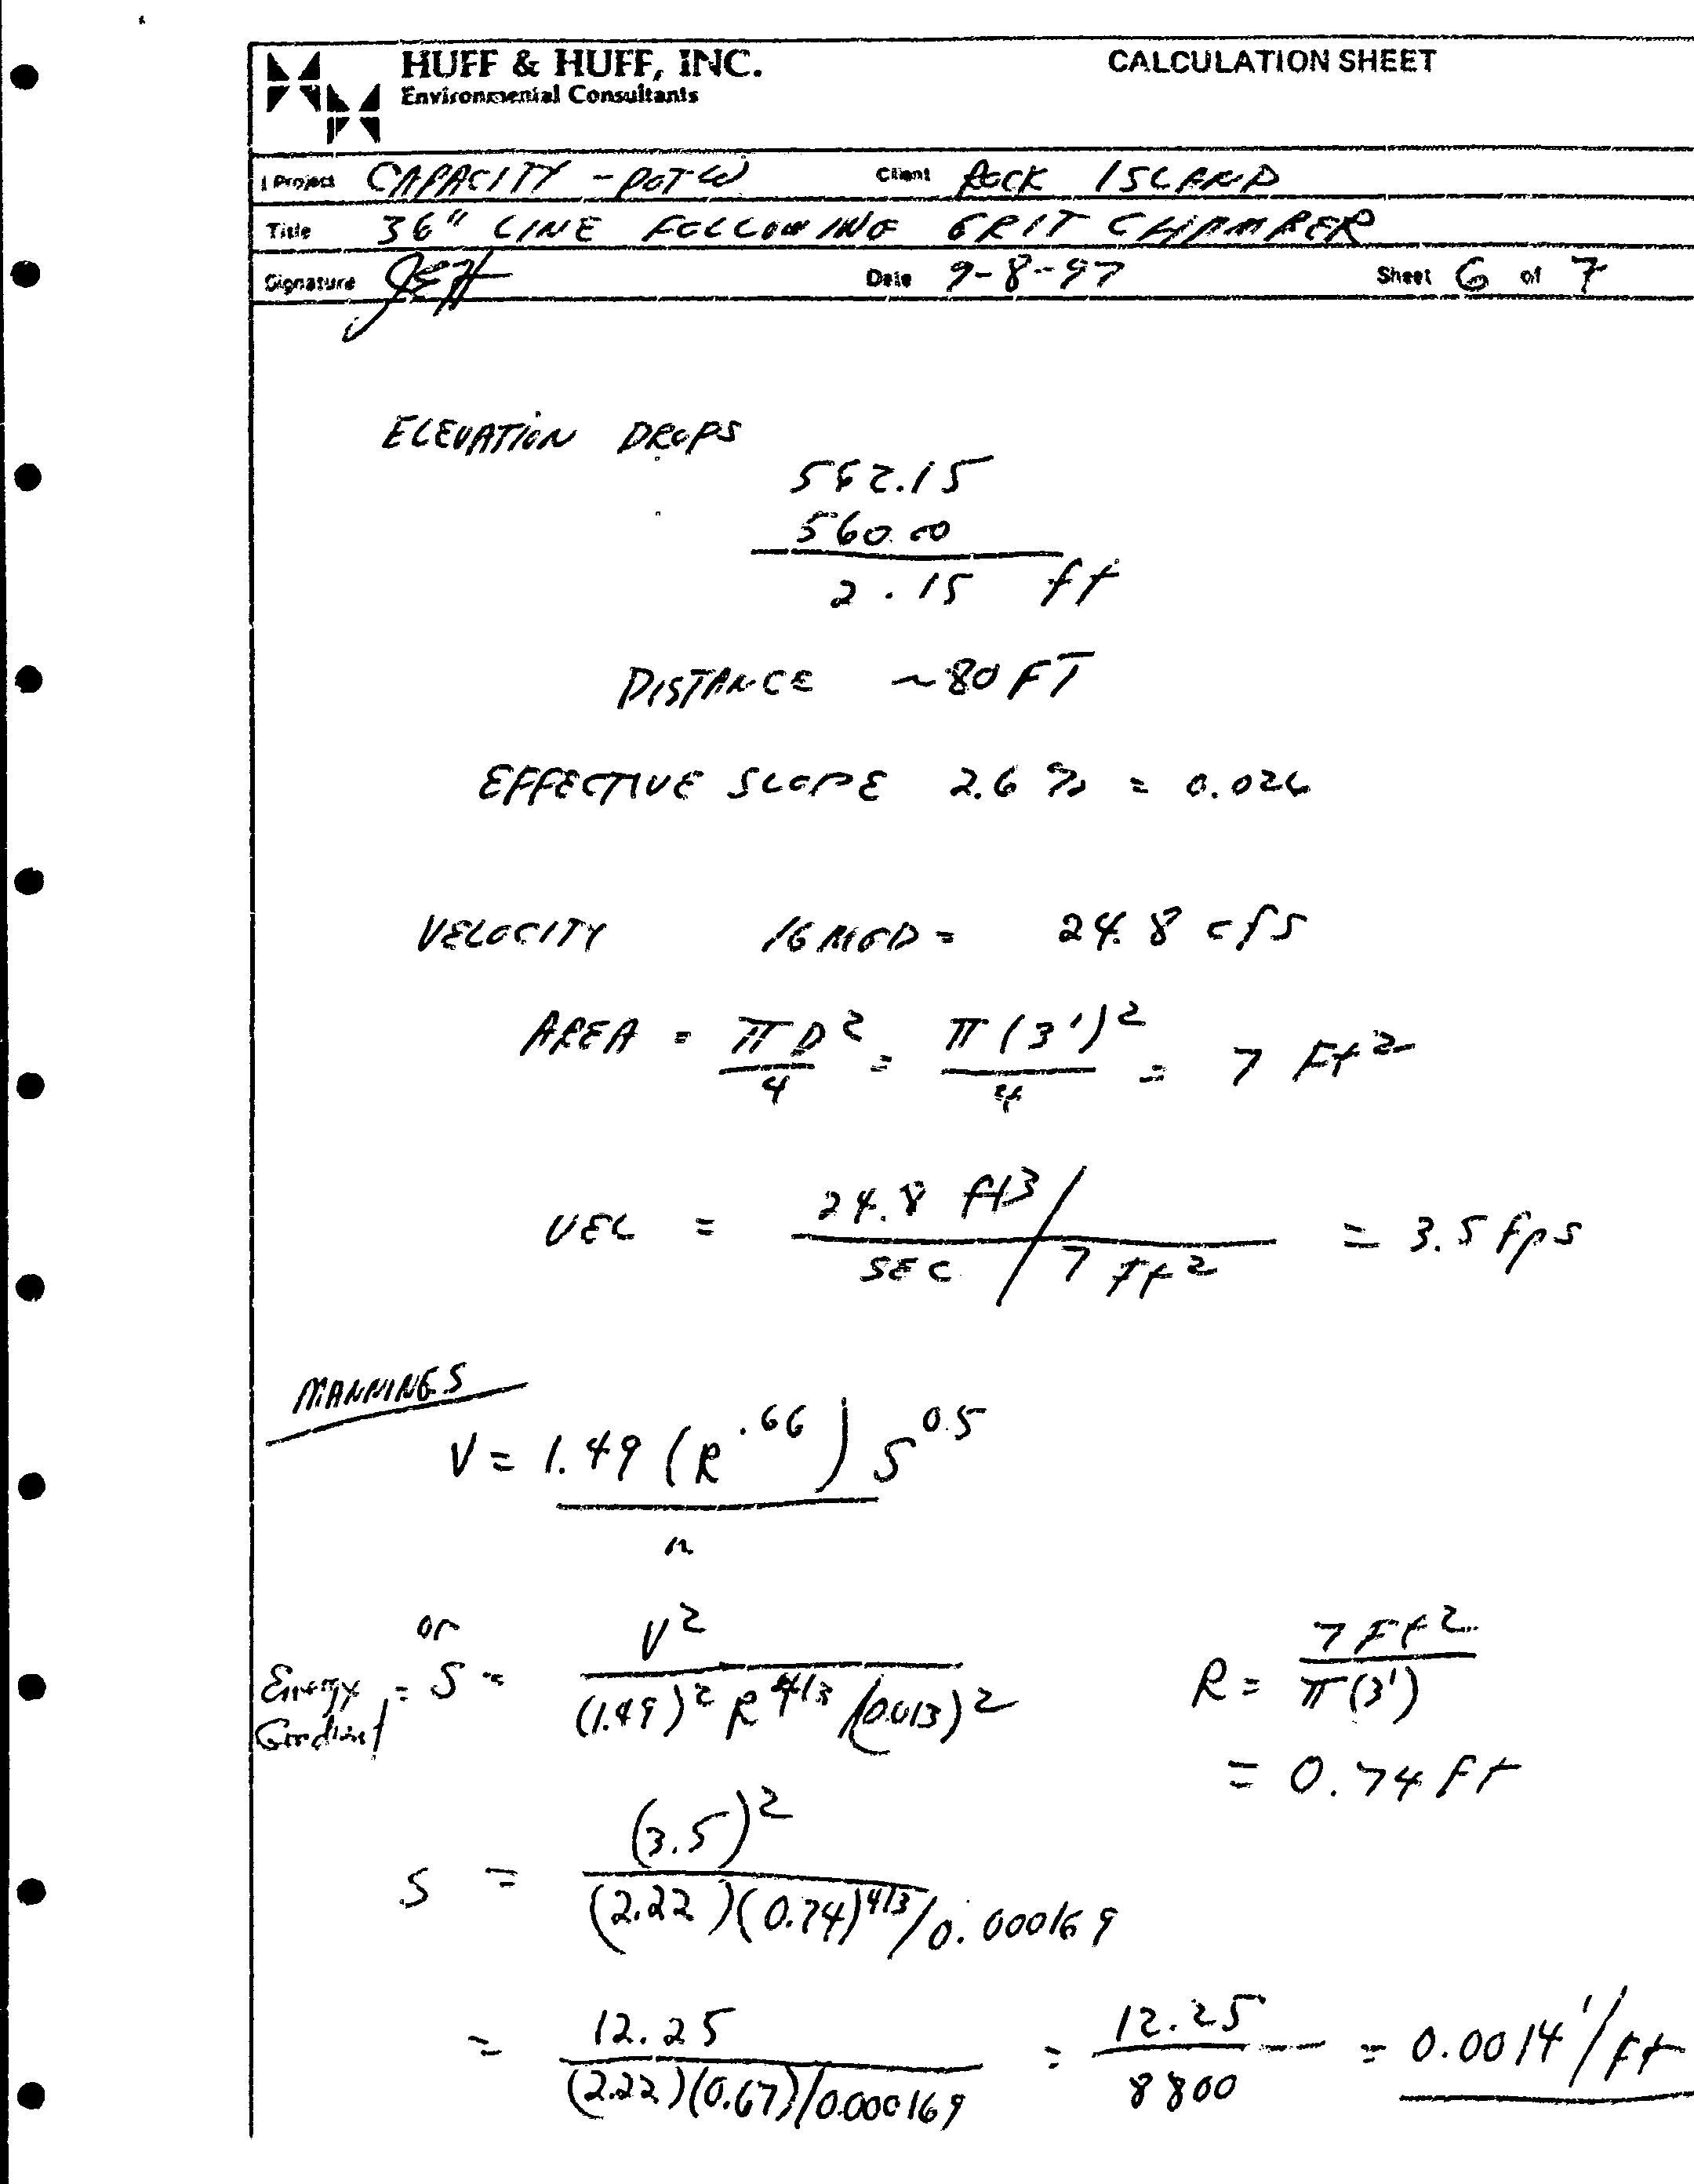 HUFF & HUFF, INC.
Environmental Consultants
CALCULATION SHEET
Project CAPACITY - POTW Client ROCK ISLAND
Title 36" LINE FOLLOWING GRIT CHAMBER
Signature JEH Date 9-8-97 Sheet 6 of 7
ELEVATION DROPS
562.15
560.00
2.15 ft
DISTANCE ~80 FT
EFFECTIVE SLOPE 2.6 % = 0.026
VELOCITY 16 MGD = 24.8 cfs
AREA = πD²/4 = π(3')²/4 = 7 Ft²
VEL = 24.8 ft3/SEC / 7 Ft² = 3.5 fps
MANNINGS
V = 1.49 (R^.66) S^0.5 / n
or
Energy Gradient = S = V² / (1.49)² R^4/3 /(0.013)²
R = 7 Ft² / π(3')
= 0.74 Ft
S = (3.5)² / (2.22)(0.74)^4/3 / 0.000169
= 12.25 / (2.22)(0.67)/0.000169 = 12.25 / 8800 = 0.0014'/ft